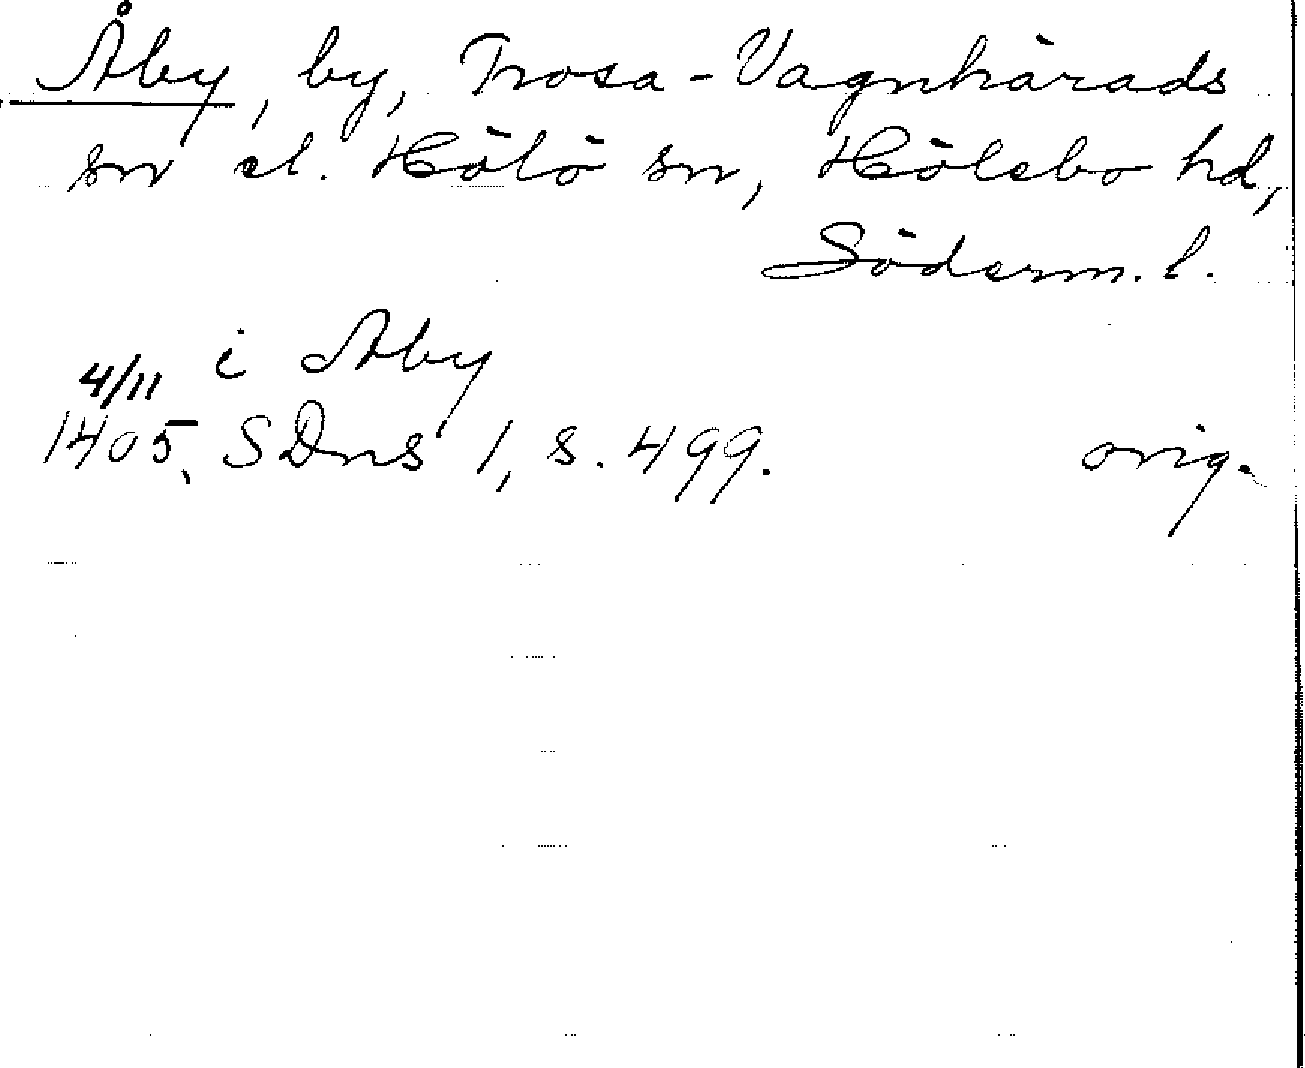 Åby, by, Trosa-Vagnhärads
sn el. Hölö sn, Hölebo hd,
Söderm. l.
i Aby
4/11
1405, SDns 1, s. 499. orig.